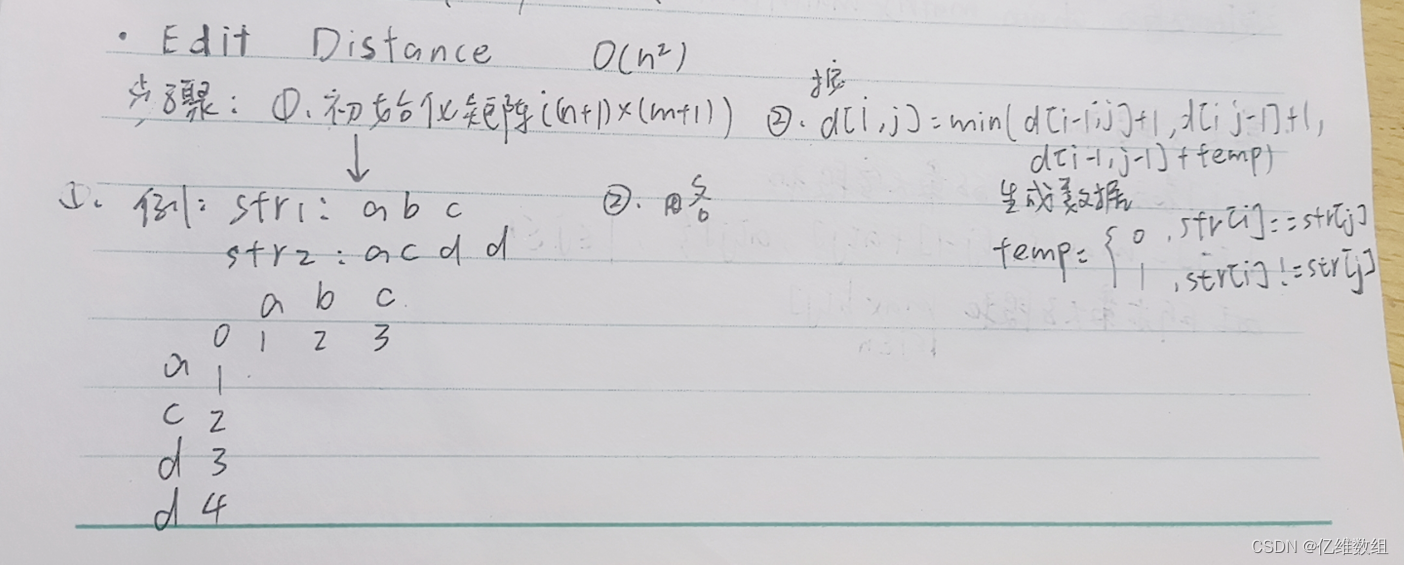 · Edit Distance O(n²)
步骤: ①. 初始化矩阵i(n+1)×(m+1)) ②. 按 d[i,j]=min(d[i-1,j]+1,d[i j-1]+1,
d[i-1,j-1]+temp)
生成数据
①. 例: str1: a b c ②.
str2: a c d d temp={ 0 ,str[i]==str[j]
1 ,str[i]!=str[j]
a b c
0 1 2 3
a 1
c 2
d 3
d 4
CSDN @亿维数组